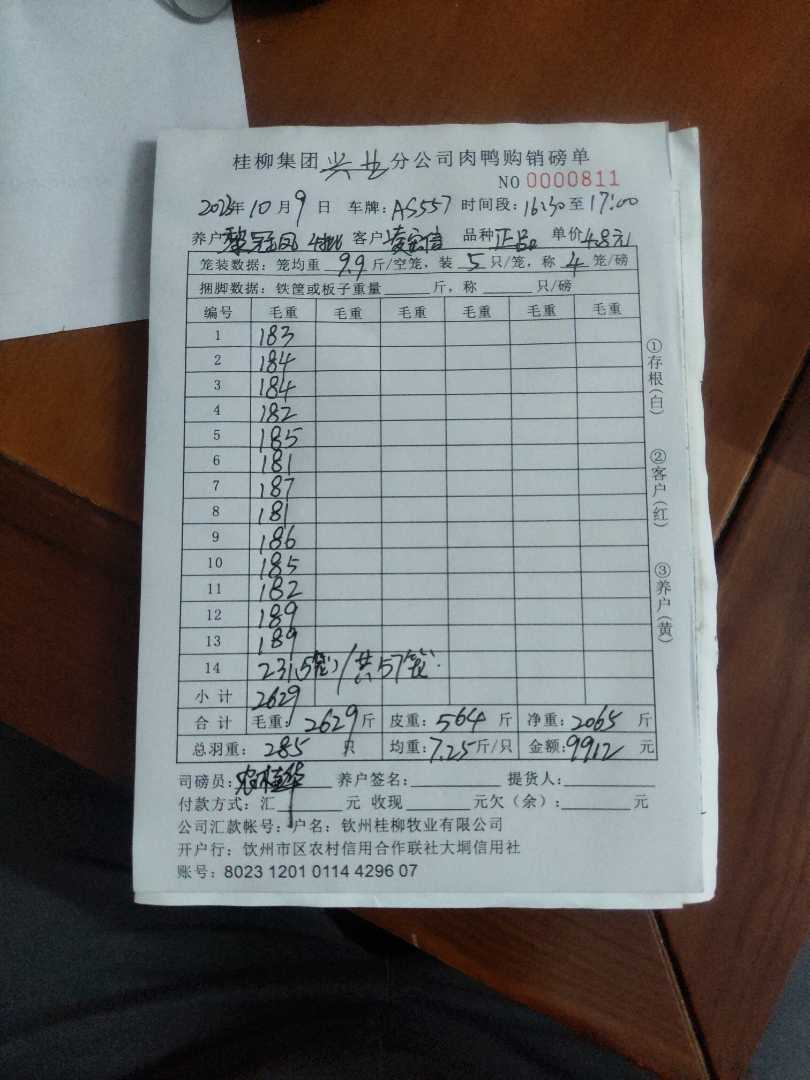 桂柳集团兴业分公司肉鸭购销磅单
NO 0000811
2023年10月9日 车牌:AS557 时间段:16:30至17:00
养户 黎冠凤 客户 凌宏信 品种 正品 单价 4.8元
笼装数据:笼均重 9.9 斤/空笼,装 5 只/笼,称 4 笼/磅
捆脚数据:铁筐或板子重量______斤,称______只/磅
编号 毛重 毛重 毛重 毛重 毛重 毛重
1 183
2 184
3 184
4 182
5 185
6 181
7 187
8 181
9 186
10 185
11 182
12 189
13 189
14 231(5笼)/共57笼
小计 2629
合计 毛重:2629斤 皮重:564斤 净重:2065斤
总羽重:285只 均重:7.25斤/只 金额:9912元
司磅员:农桂华 养户签名:________ 提货人:________
付款方式:汇______元 收现______元欠(余):______元
公司汇款帐号:户名:钦州桂柳牧业有限公司
开户行:钦州市区农村信用合作联社大垌信用社
账号:8023 1201 0114 4296 07
①存根(白)
②客户(红)
③养户(黄)